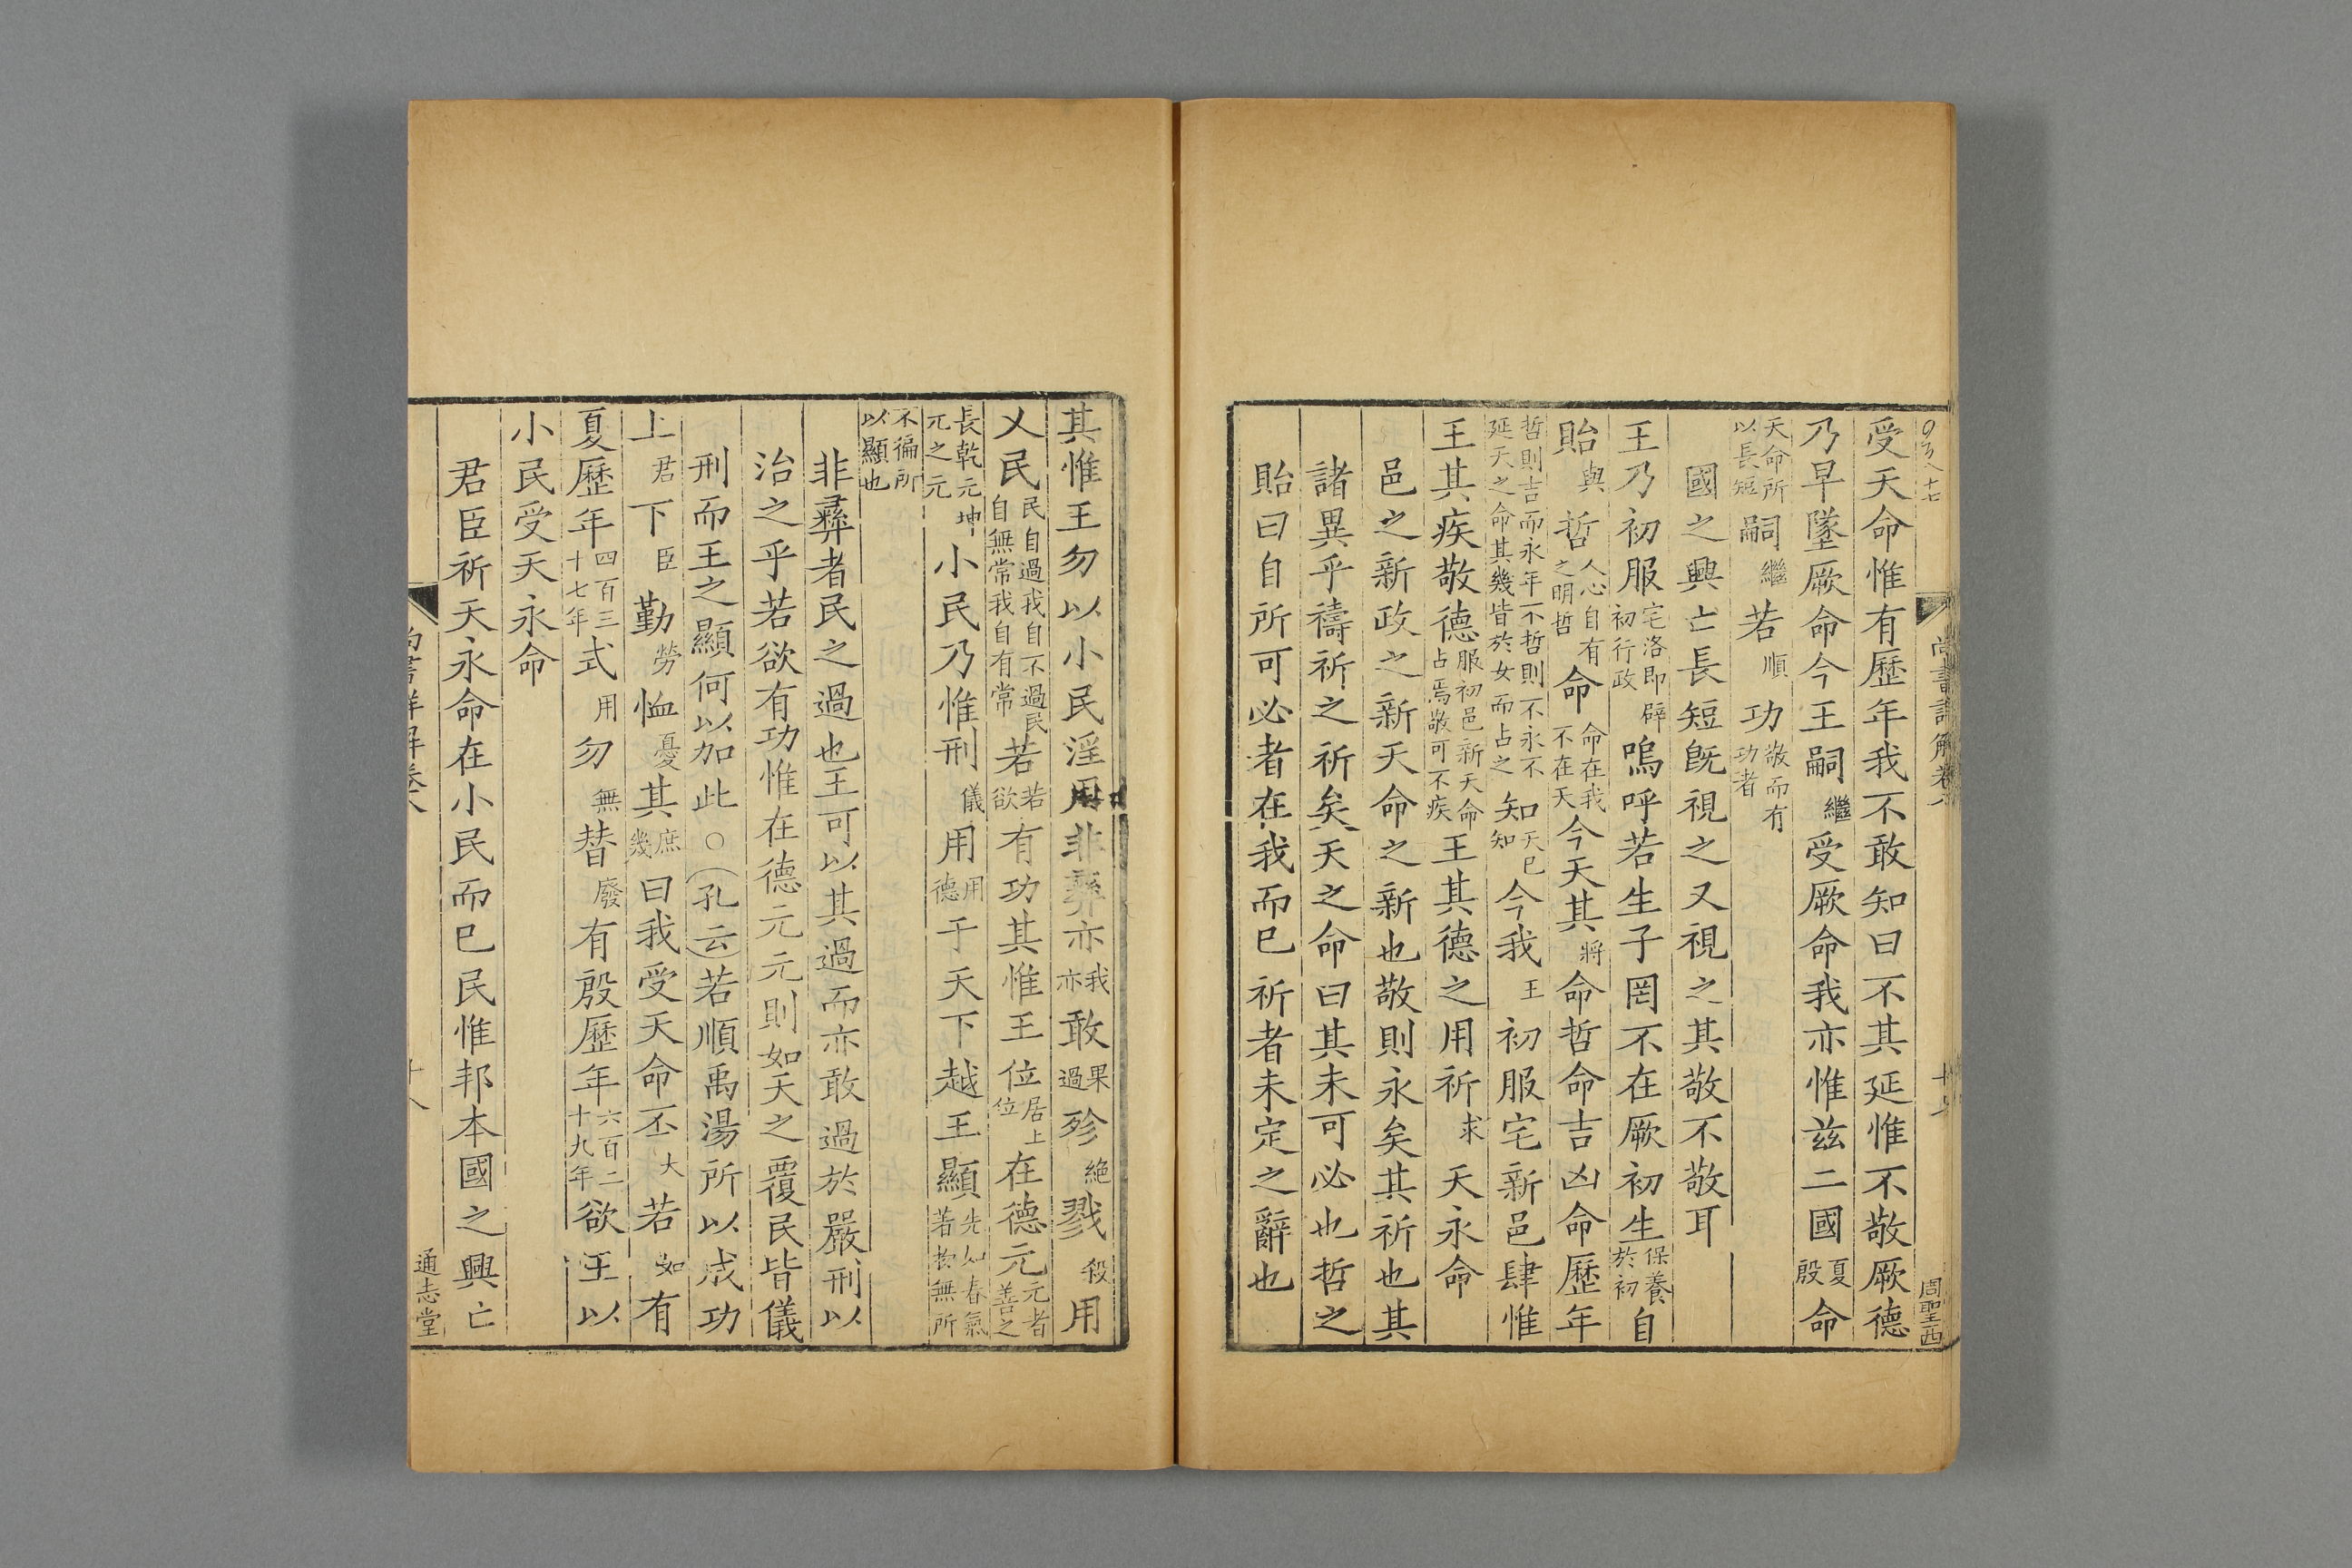 尚書詳解卷八
周聖西
受天命惟有歷年我不敢知曰不其延惟不敬厥德
乃早墜厥命今王嗣繼受厥命我亦惟茲二國夏殷命
天命所以長短嗣繼若順功敬而有功者
國之興亡長短旣視之又視之其敬不敬耳
王乃初服宅洛即辟初行政嗚呼若生子罔不在厥初生保養於初自
貽與哲人心自有之明哲命命在我不在天今天其將命哲命吉凶命歷年
哲則吉而永年不哲則不永不延天之命其幾皆於女而占之知天已知今我王初服宅新邑肆惟
王其疾敬德服初邑新天命占焉敬可不疾王其德之用祈求天永命
邑之新政之新天命之新也敬則永矣其祈也其
諸異乎禱祈之祈矣天之命曰其未可必也哲之
貽曰自所可必者在我而已祈者未定之辭也
其惟王勿以小民淫用非彝亦我亦敢果過殄絕戮殺用
乂民民自過我自不過民自無常我自有常若若欲有功其惟王位居上位在德元元者善之
長乾元坤元之元小民乃惟刑儀用用德于天下越王顯先如春氣著物無所
不徧所以顯也
非彝者民之過也王可以其過而亦敢過於嚴刑以
治之乎若欲有功惟在德元元則如天之覆民皆儀
刑而王之顯何以加此○孔云若順禹湯所以成功
上君下臣勤勞恤憂其庶幾曰我受天命丕大若如有
夏歷年四百三十七年式用勿無替廢有殷歷年六百二十九年欲王以
小民受天永命
君臣祈天永命在小民而已民惟邦本國之興亡
尚書詳解卷八
十八
通志堂